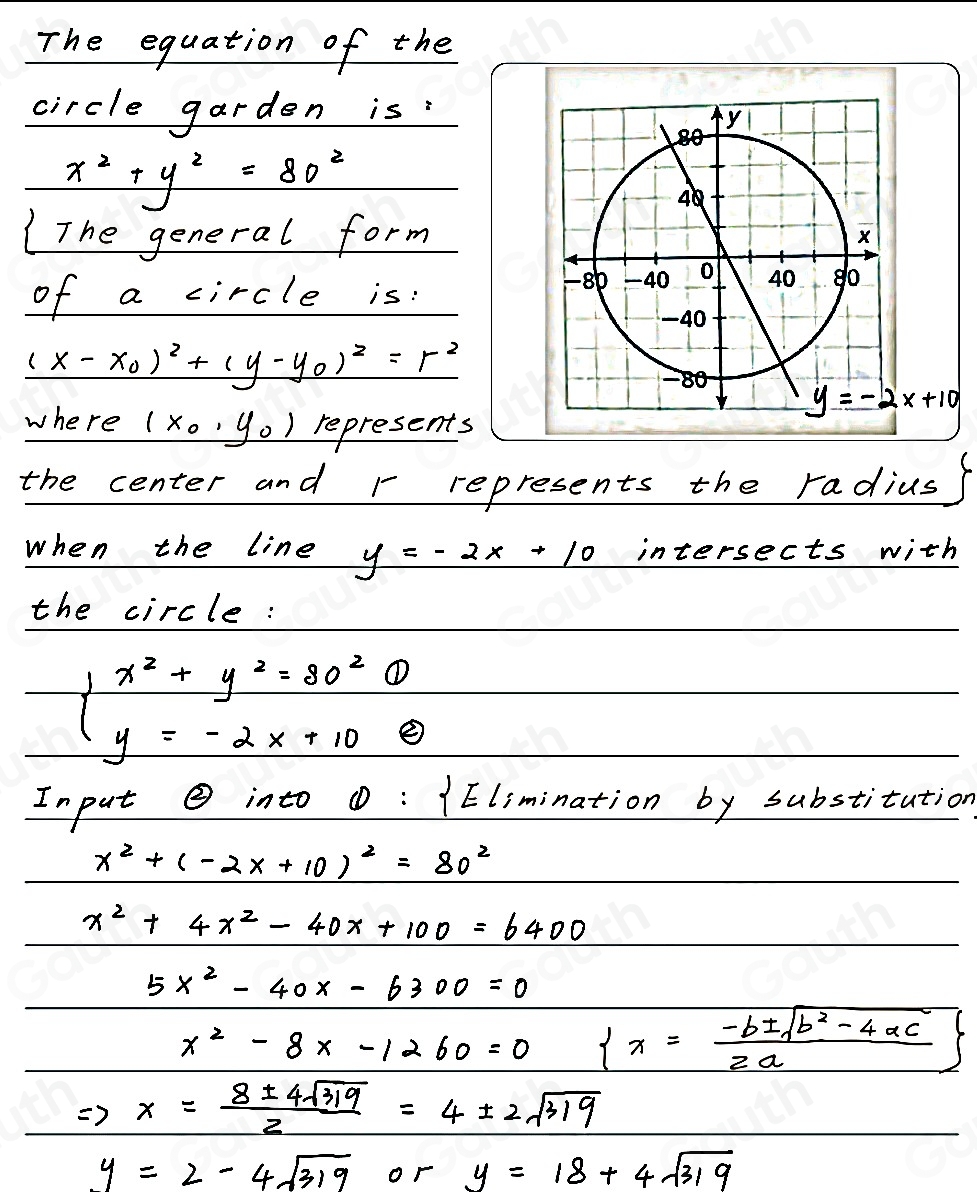 The equation of the
circle garden is:
x² + y² = 80²
{The general form
of a circle is:
(x - x₀)² + (y - y₀)² = r²
where (x₀, y₀) represents
80 y
40
x
-80 -40 0 40 80
-40
-80
y = -2x+10
the center and r represents the radius}
when the line y = -2x + 10 intersects with
the circle:
{ x² + y² = 80² ①
y = -2x + 10 ②
Input ② into ① : {Elimination by substitution
x² + (-2x + 10)² = 80²
x² + 4x² - 40x + 100 = 6400
5x² - 40x - 6300 = 0
x² - 8x - 1260 = 0 { x = (-b±√(b² - 4ac))/(2a) }
=> x = (8 ± 4√319)/2 = 4 ± 2√319
y = 2 - 4√319 or y = 18 + 4√319
Gauth